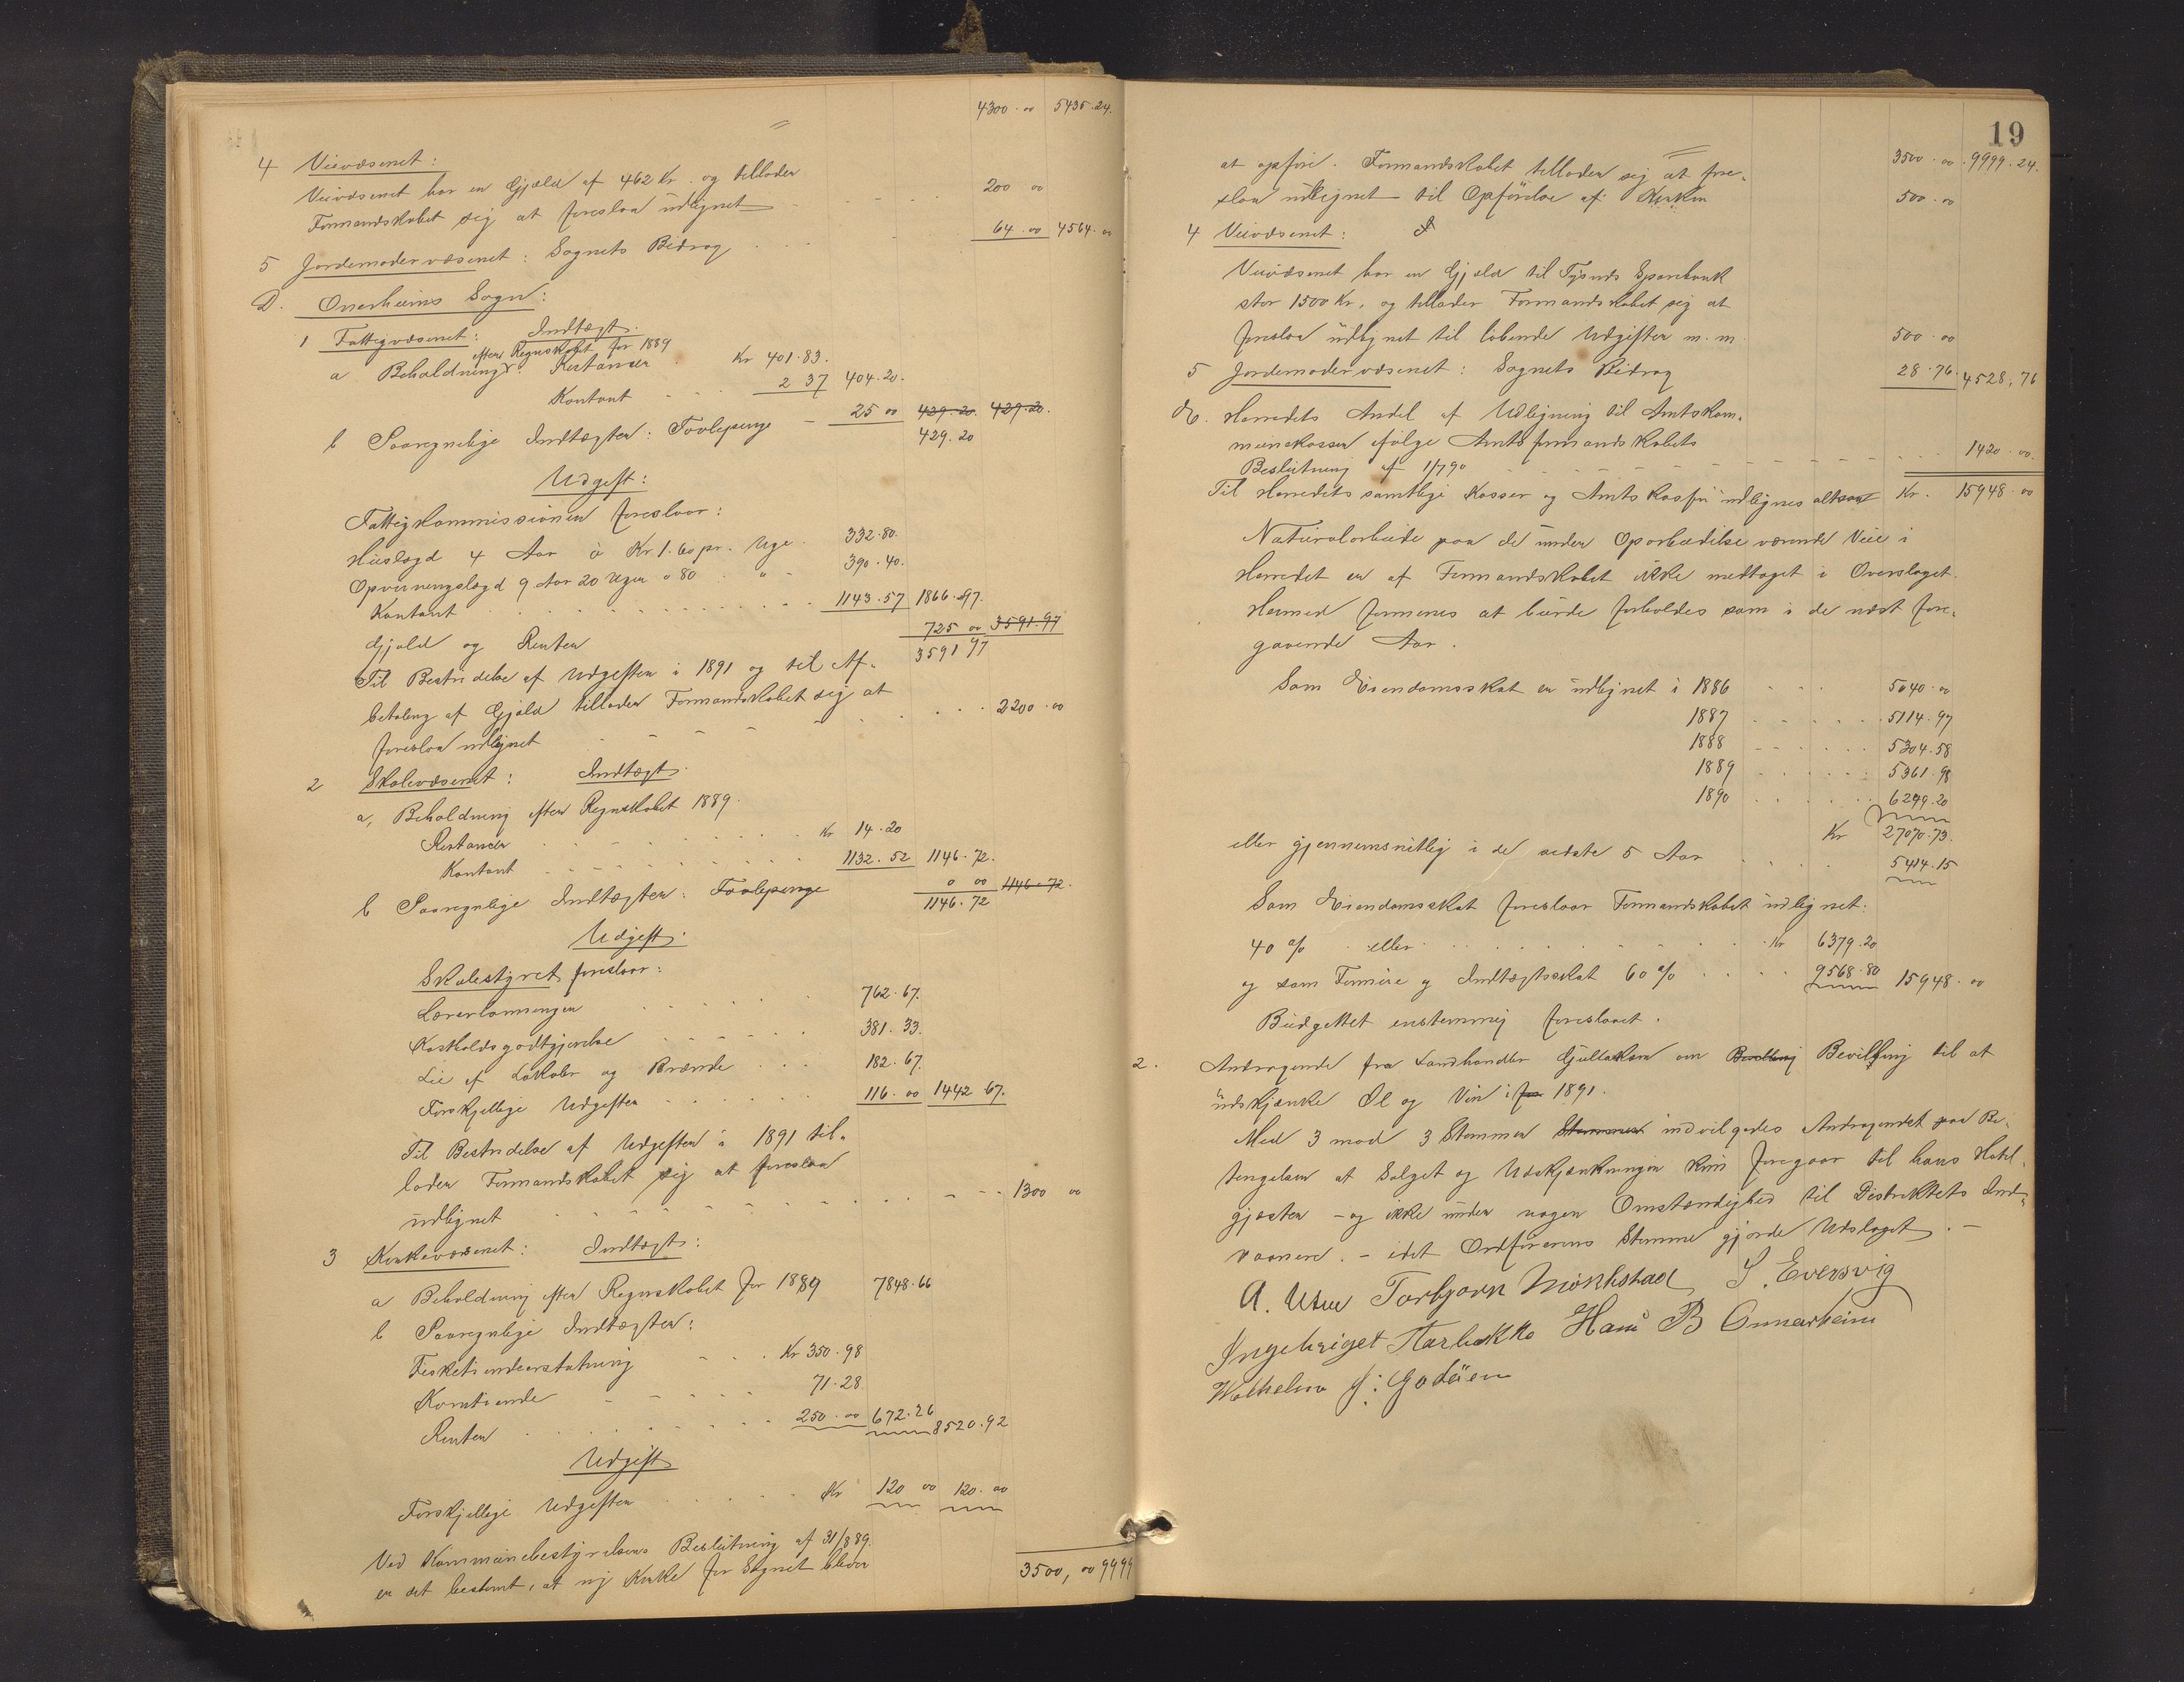 4300.00 5435.24.
4 Veivæsenet:
Veivæsenet har en Gjæld af 462 Kr. og tillader
Formandskabet sig at foreslaa udlignet 200 00
5 Jordemodervæsenet: Sognets Bidrag 64.00 4564.00
D. Onarheims Sogn:
1 Fattigvæsenet: Indtægt.
efter Regnskabet for 1889
a Beholdning: Restancer Kr 401.83.
Kontant 2 37 404.20.
b Paaregnelige Indtægter: Tovlepenge 25 00 429.20. 429.20.
429.20
Udgift:
Fattigkommissionen foreslaar:
Huslægd 4 Aar à Kr 1.60 pr. Uge 332.80.
Opverningslægd 9 Aar 20 Uger a 80 " 390.40.
Kontant 1143.57 1866.97.
Gjæld og Renter 725 00 3591.97
3591 97
Til Bestridelse af Udgifter i 1891 og til Af-
betaling af Gjæld tillader Formandskabet sig at
foreslaa udlignet 2200.00
2 Skolevæsenet: Indtægt
a, Beholdning efter Regnskabet 1889.
Restancer Kr 14.20
Kontant 1132.52 1146.72.
b Paaregnelige Indtægter: Tovlepenge 0 00 1146.72.
1146.72
Udgift.
Skolestyret foreslaar:
Lærerlønninger 762.67.
Kostholdsgodtgjørelse 381.33.
Leie af Lokaler og Brænde 182.67.
Forskjellige Udgifter 116.00 1442 67.
Til Bestridelse af Udgifter i 1891 til-
lader Formandskabet sig at foreslaa
udlignet 1300 00
3 Kirkevæsenet: Indtægt:
a Beholdning efter Regnskabet for 1889 7848.66
b Paaregnelige Indtægter:
Fisketiendeerstatning Kr 350.98
Korntiende 71.28
Renter 250.00 672.26 8520.92
Udgift
Forskjellige Udgifter Kr 120 00 120.00
Ved Kommunebestyrelsens Beslutning af 31/8 89.
er det bestemt, at ny Kirke for Sognet bliver
3500,00 9999
19
3500.00 9999.24.
at opføre. Formandskabet tillader sig at fore-
slaa udlignet til Opførelse af Kirken 500.00
4 Veivæsenet:
Veivæsenet har en Gjæld til Tysnes Sparebank
stor 1500 Kr, og tillader Formandskabet sig at
foreslaa udlignet til løbende Udgifter m. m 500.00
5 Jordemodervæsenet: Sognets Bidrag 28.76 4528,76
E. Herredets Andel af Udligning til Amtskom-
munekassen ifølge Amtsformandskabets
Beslutning af 1/7 90 1420.00.
Til Herredets samtlige Kasser og Amtskassen udlignes altsaa Kr. 15948.00
Naturalarbeide paa de under Oparbeidelse værende Veie i
Herredet er af Formandskabet ikke medtaget i Overslaget.
Hermed formenes at burde forholdes som i de næst fore-
gaaende Aar.
Som Eiendomsskat er udlignet i 1886 5040.00
1887 5114.97
1888 5304.58
1889 5361.98
1890 6249.20
Kr 27070.73.
eller gjennemsnitlig i de sidste 5 Aar 5414.15
Som Eiendomsskat foreslaar Formandskabet udlignet:
40 % eller Kr 6379.20
og som Formue og Indtægtsskat 60 % 9568.80 15948.00
Budgettet enstemmig foreslaaet.
2. Andragende fra Landhandler Gullaksen om Bevilling Bevilling til at
udskjænke Øl og Vin i for 1891.
Med 3 mod 3 Stemmer Stemmer indvilgedes Andragendet paa Be-
tingelsen at Salget og Udskjænkningen kun foregaar til hans Hotel-
gjæster - og ikke under nogen Omstændighed til Distriktets Ind-
vaanere. - idet Ordførerens Stemme gjorde Udslaget. -
A. Uson Torbjørn Mørkhstad S. Eversvig
Ingebriget Flarbakke Hans B Onnarheim
Wilhelm G. Godøen